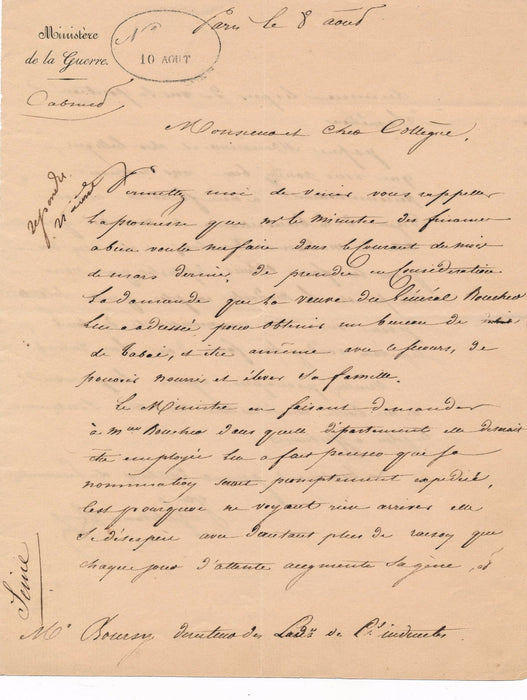 Ministère
de la Guerre.
Cabinet
N°
10 AOUT
Paris le 8 août
Monsieur et cher Collègue,
répondre
Permettez moi de venir vous rappeller
la promesse que Mr le Ministre des finances
a bien voulu me faire dans le Courant du mois
de mars dernier, de prendre en Considération
la demande que la veuve du Général Boucher
lui a adressée pour obtenir un bureau de
de tabac, et être à même avec ce secours, de
pouvoir nourrir et élever sa famille.
Le Ministre en faisant demander
à Mme Boucher dans quel département elle désirait
être employée lui a fait penser que sa
nomination serait promptement expédiée,
c'est pourquoi ne voyant rien arriver elle
se désespère avec d'autant plus de raison que
chaque jour d'attente augmente sa gêne, et
Seine
Mr Boursy directeur des Cons de Cts indirectes